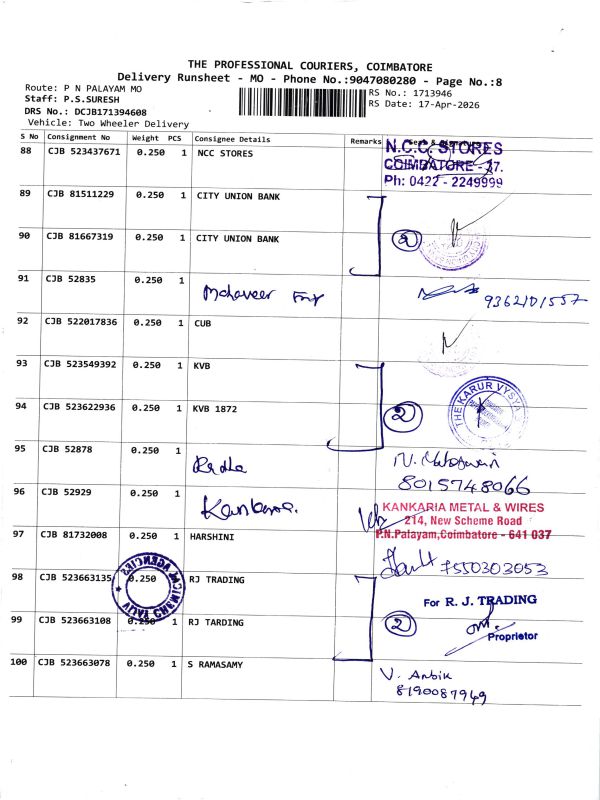 THE PROFESSIONAL COURIERS, COIMBATORE
Delivery Runsheet - MO - Phone No.:9047080280 - Page No.:8
Route: P N PALAYAM MO
RS No.: 1713946
Staff: P.S.SURESH
RS Date: 17-Apr-2026
DRS No.: DCJB171394608
Vehicle: Two Wheeler Delivery
S No Consignment No Weight PCS Consignee Details Remarks Seal & Signature
88 CJB 523437671 0.250 1 NCC STORES
N.C.C. STORES
COIMBATORE - 37.
Ph: 0422 - 2249999
89 CJB 81511229 0.250 1 CITY UNION BANK
90 CJB 81667319 0.250 1 CITY UNION BANK 2
91 CJB 52835 0.250 1 Mahaveer 9362101557
92 CJB 522017836 0.250 1 CUB
93 CJB 523549392 0.250 1 KVB
94 CJB 523622936 0.250 1 KVB 1872 2 THE KARUR VYSYA
95 CJB 52878 0.250 1 Radha
8015748066
96 CJB 52929 0.250 1
KANKARIA METAL & WIRES
214, New Scheme Road
P.N.Palayam,Coimbatore - 641 037
97 CJB 81732008 0.250 1 HARSHINI
7550303053
98 CJB 523663135 0.250 1 RJ TRADING
For R. J. TRADING
99 CJB 523663108 0.250 1 RJ TARDING 2
Proprietor
100 CJB 523663078 0.250 1 S RAMASAMY
V. Anbik
8190087949